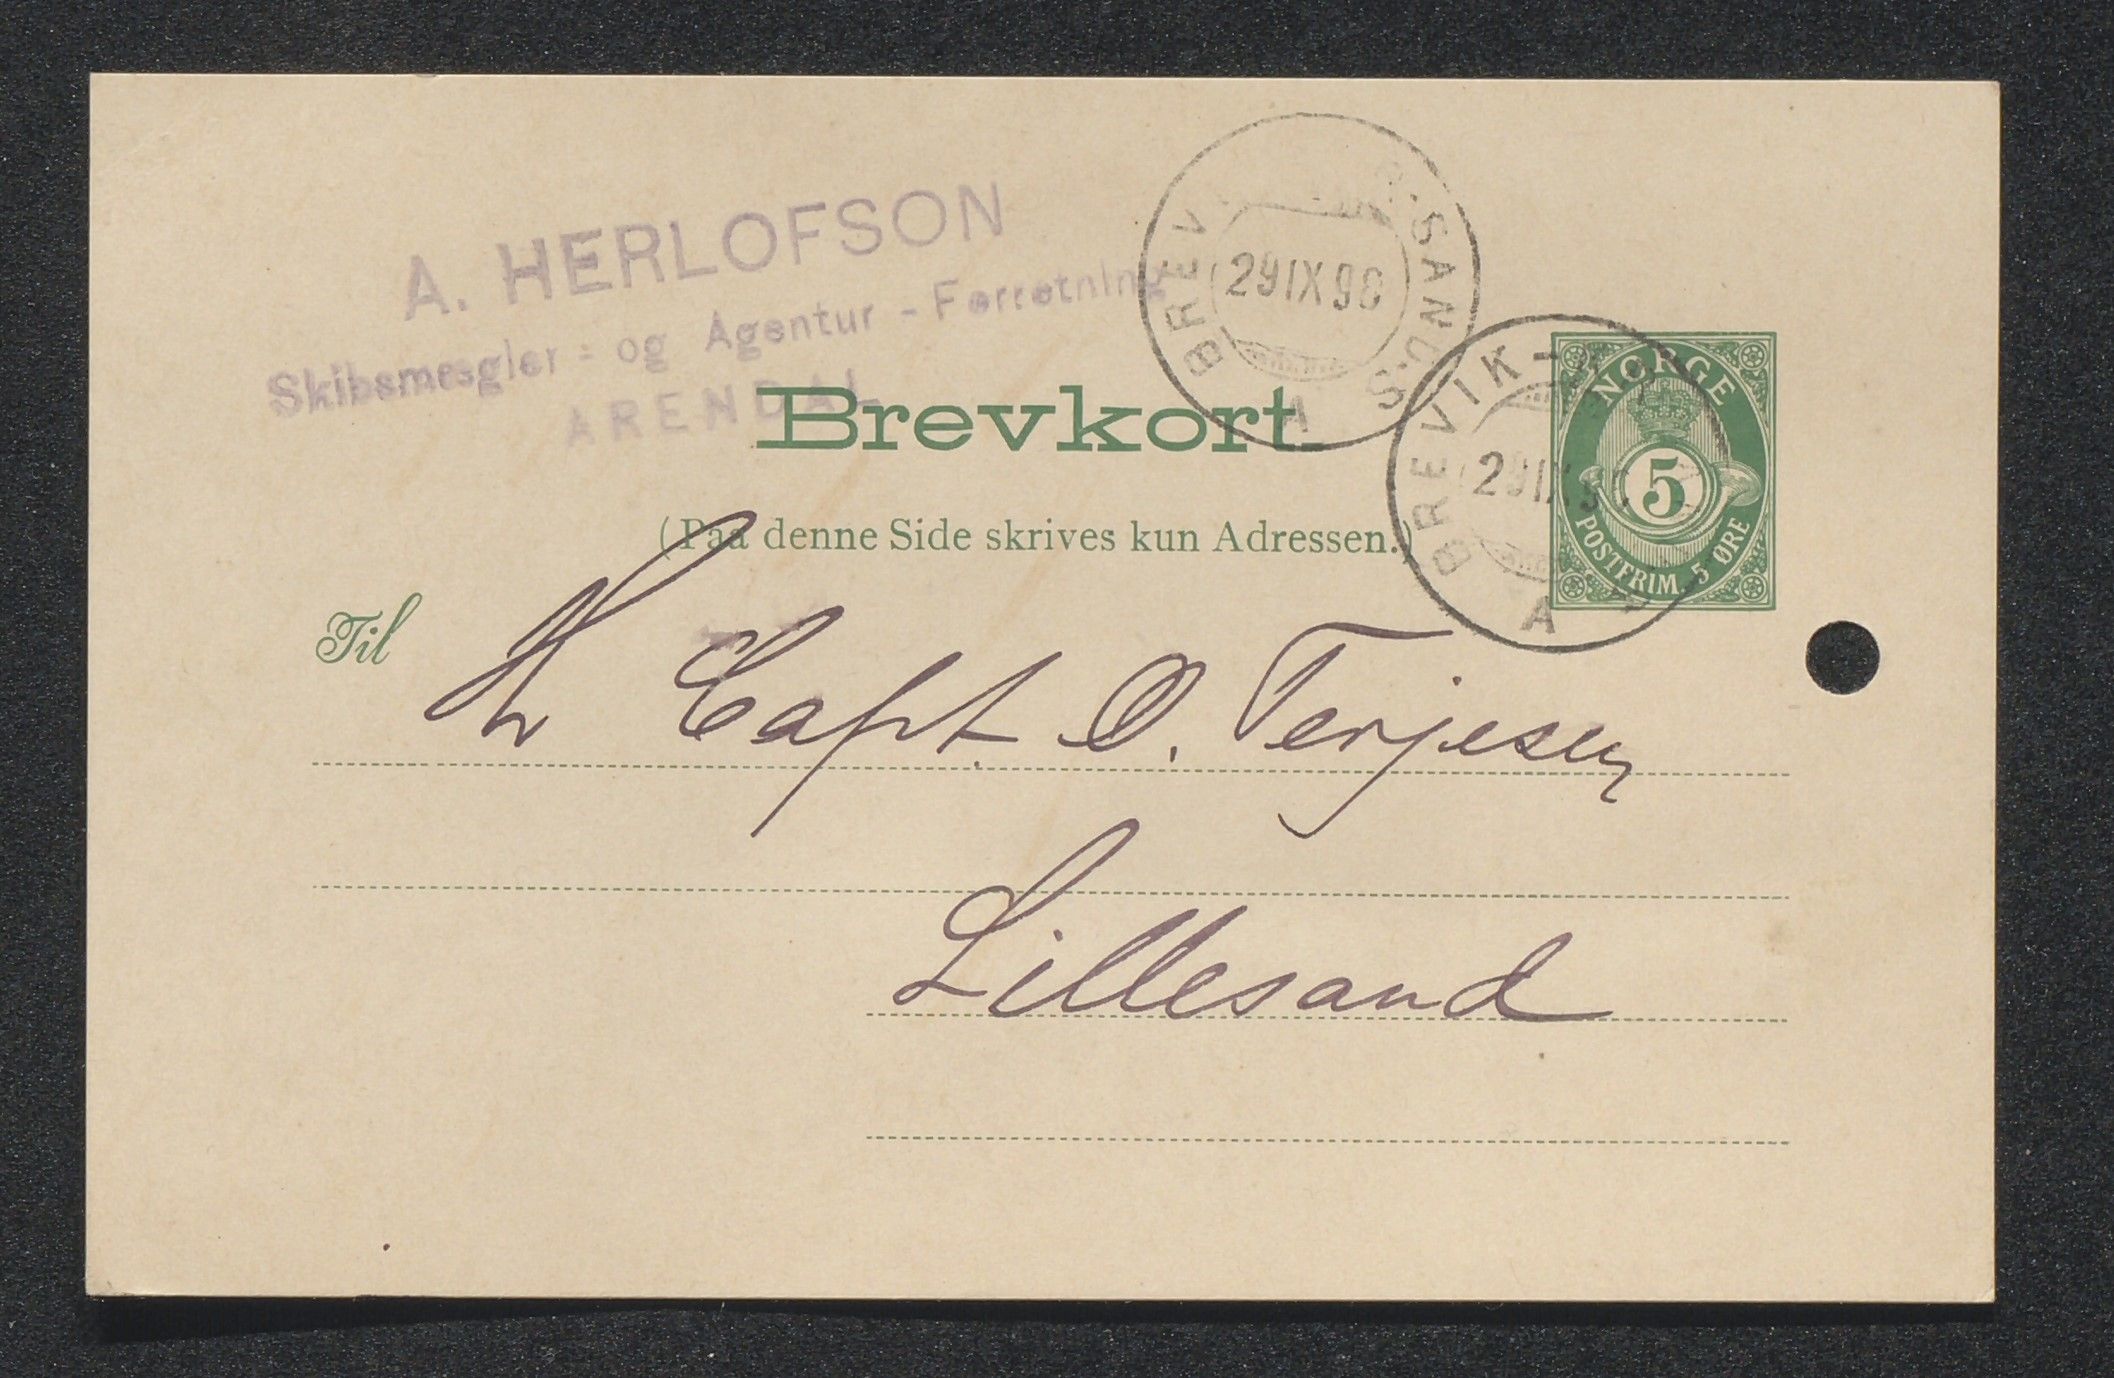 A. HERLOFSON
Skibsmægler- og Agentur-Forretning
ARENDAL
BREV SANDS A
29 IX 9
BREVIK- A
29 IX 9
NORGE
5
POSTFRIM. 5 ØRE
Brevkort
(Paa denne Side skrives kun Adressen.)
Til Hr Capt. O. Terjesen
Lillesand